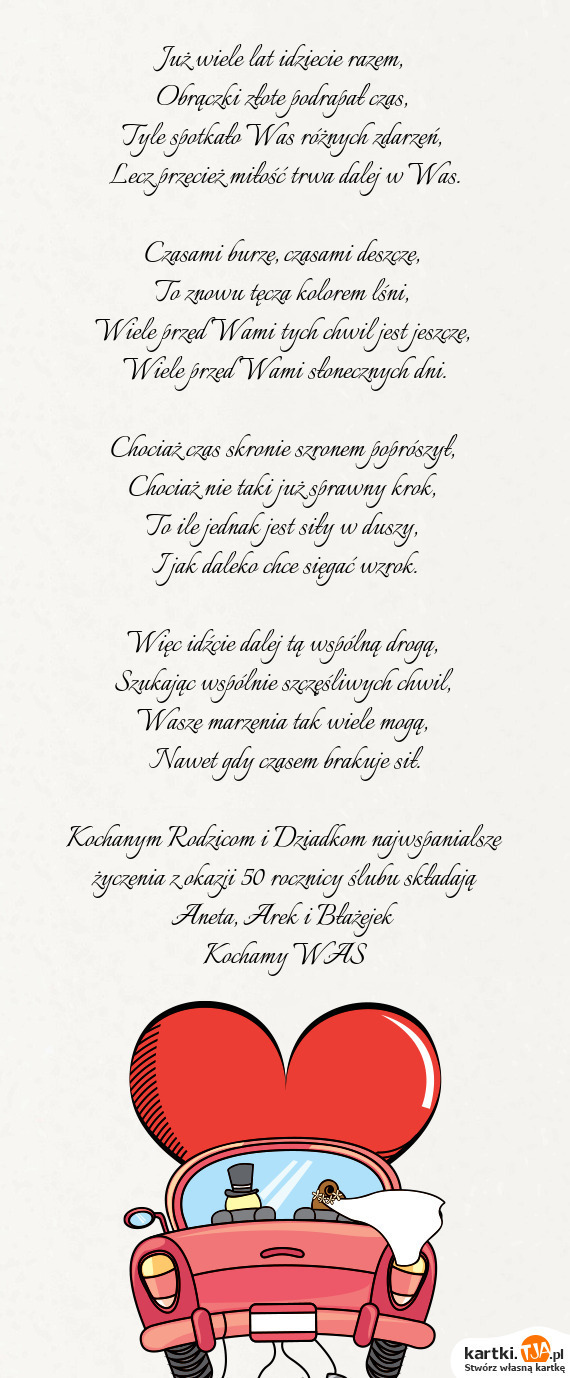 Już wiele lat idziecie razem,
Obrączki złote podrapał czas,
Tyle spotkało Was różnych zdarzeń,
Lecz przecież miłość trwa dalej w Was.
Czasami burze, czasami deszcze,
To znowu tęcza kolorem lśni,
Wiele przed Wami tych chwil jest jeszcze,
Wiele przed Wami słonecznych dni.
Chociaż czas skronie szronem poprószył,
Chociaż nie taki już sprawny krok,
To ile jednak jest siły w duszy,
I jak daleko chce sięgać wzrok.
Więc idźcie dalej tą wspólną drogą,
Szukając wspólnie szczęśliwych chwil,
Wasze marzenia tak wiele mogą,
Nawet gdy czasem brakuje sił.
Kochanym Rodzicom i Dziadkom najwspanialsze
życzenia z okazji 50 rocznicy ślubu składają
Aneta, Arek i Błażejek
Kochamy WAS
kartki.TJA.pl
Stwórz własną kartkę